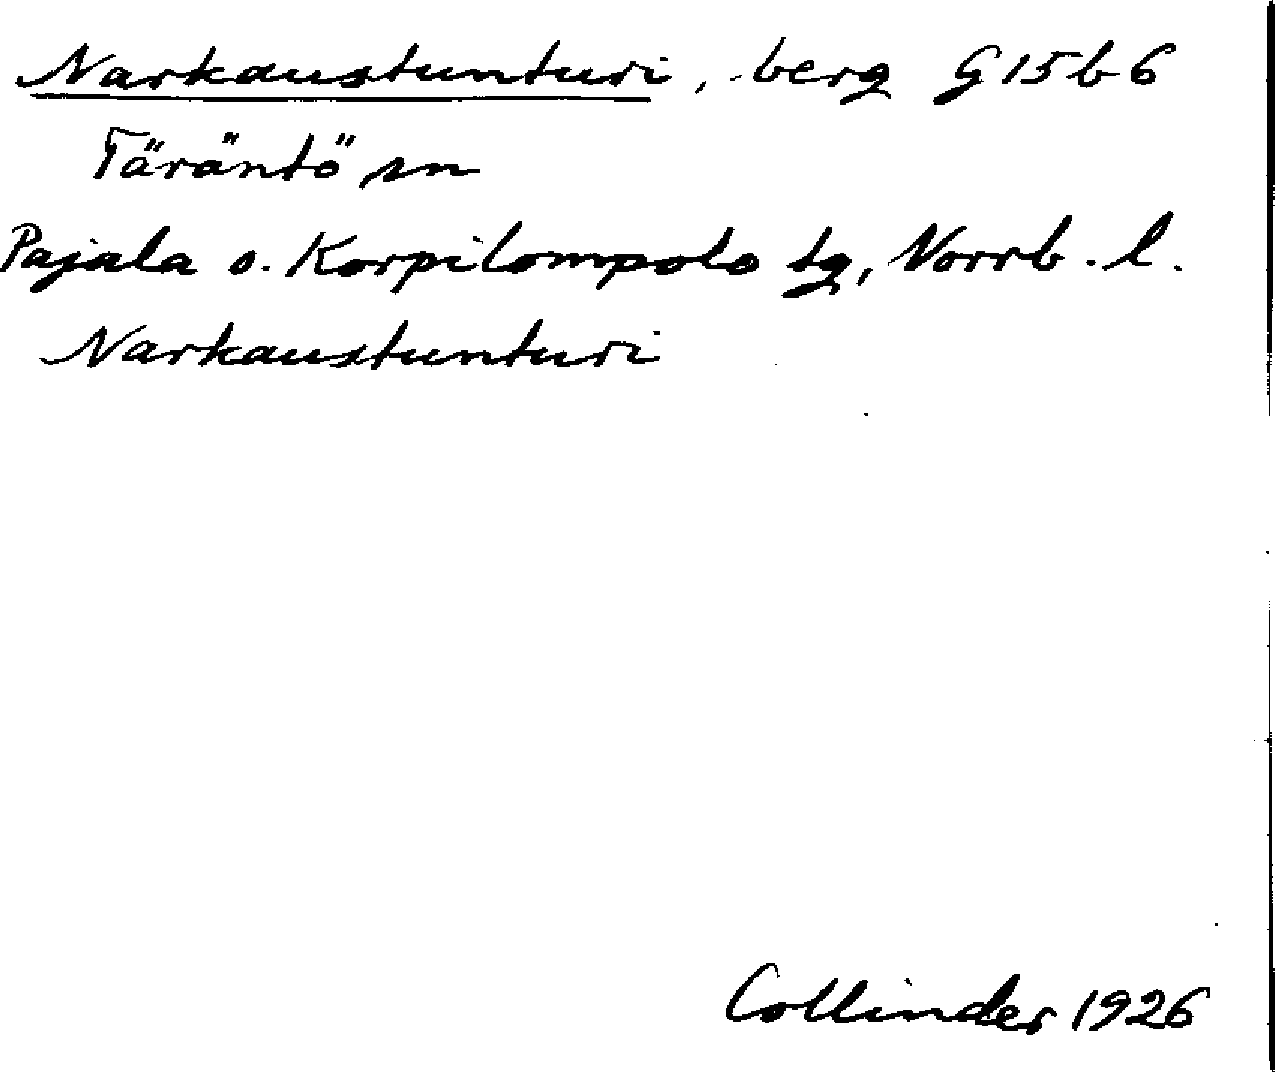 Narkaustunturi, berg G 15 b 6
Täräntö sn
Pajala o. Korpilompolo tg, Norrb. l.
Narkaustunturi
Collinder 1926